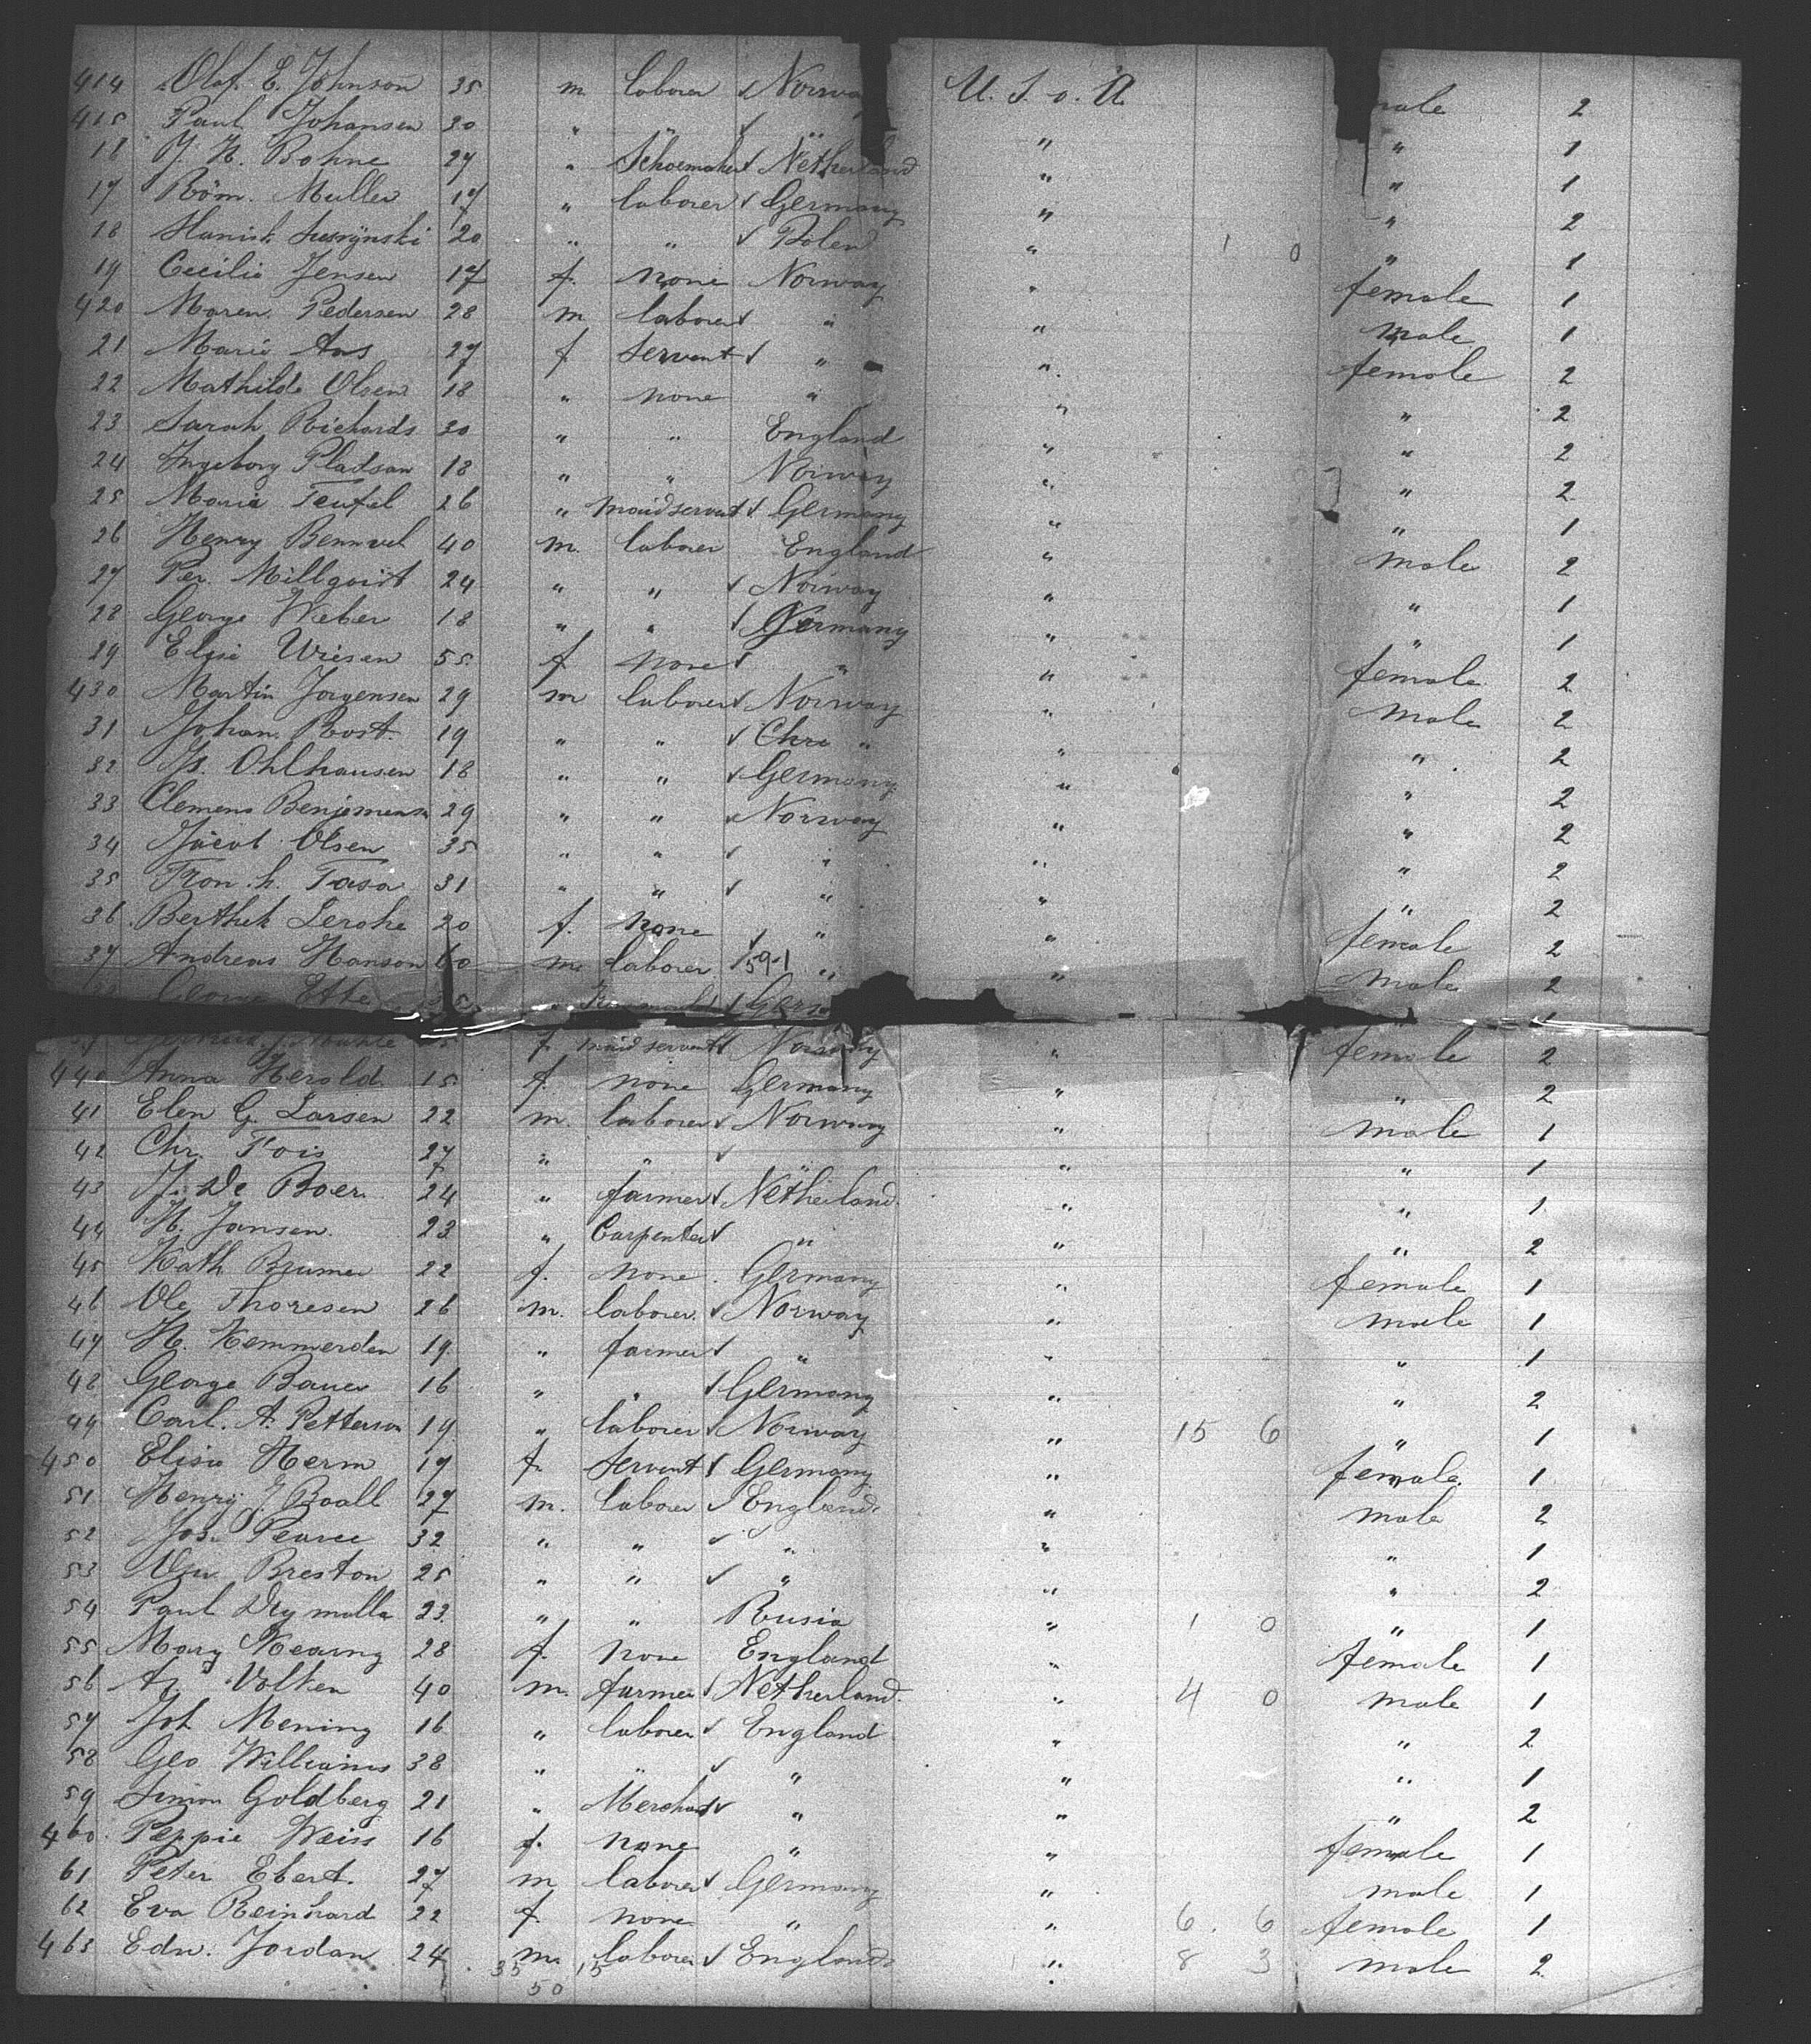 414 Olaf. E. Johnson 35 m laborer ✓ Norway U. S. o. A. male 2
415 Paul Johansen 30 " " ✓ " " " 1
16 J. H. Bohne 27 " Schoemaker ✓ Netherland " " 1
17 Röm. Muller 17 " laborer ✓ Germany " " 2
18 20 " " ✓ Poland " 1 0 " 1
19 Cecilie Jensen 17 f. none Norway " female 1
420 Maren Pedersen 28 m laborer ✓ " " male 1
21 Marie Aas 27 f servant ✓ " " female 2
22 Mathilde Olsen 18 " none " " " 2
23 Sarah Richards 30 " " England " " 2
24 Ingeborg Pladsan 18 " " Norway " " 2
25 Maria Teufel 26 " maidservant ✓ Germany " " 1
26 Henry Bennvel 40 m. laborer England " male 2
27 Per. Millqvist 24 " " ✓ Norway " " 1
28 George Weber 18 " " ✓ Germany " " 1
29 Elise Wiesen 55 f none ✓ " " female 2
430 Martin Jorgensen 29 m laborer ✓ Norway " male 2
31 Johan. Rost. 19 " " ✓ Chra " " " 2
32 Js. Ohlhausen 18 " " ✓ Germany " " 2
33 Clemens Benjamensn 29 " " ✓ Norway " " 2
34 Jacob Olsen 35 " " ✓ " " " 2
35 Tron. h. Tasa 31 " " ✓ " " " 2
36 Berthek Leroke 20 f. none ✓ " " female 2
37 Andreas Hanson 60 m. laborer ✓ 59-1 " " male 2
George Ette 35 " ✓ Germ 1
f. maid servant ✓ Norway " female 2
440 Anna Herold. 15 f. none Germany " " 2
41 Elen G. Larsen 22 m. laborer ✓ Norway " male 1
42 Chr. Fois 27 " " ✓ " " " 1
43 J. De Boer. 24 " farmer ✓ Netherland. " " 1
44 H. Jansen. 23 " Carpenter ✓ " " " 2
45 Kath Brumer 22 f. none. Germany " female 1
46 Ole Thoresen 26 m. laborer. ✓ Norway " male 1
47 H. Kemmerden 19. " farmer ✓ " " " 1
48 George Bauer 16 " " ✓ Germany " " 2
49 Carl. A. Petterson 19 " laborer ✓ Norway " 15 6 " 1
450 Elise Herm 17 f. servant ✓ Germany " female. 1
51 Henry J. Boall 27 m. laborer ✓ England. " male 2
52 Jos. Pearce 32 " " ✓ " " " 1
53 Wm Breston 25 " " ✓ " " " 2
54 Paul Drymalla 23 " " Rusia " 1 0 " 1
55 Mary Kearny 28 f. none England " female 1
56 A. Volken 40 m. farmer ✓ Netherland. " 4 0 male 1
57 Joh Mening 16 " laborer ✓ England " " 2
58 Geo Williams 38 " " ✓ " " " 1
59 Simon Goldberg 21 " Merchant ✓ " " " 2
460 Peppie Weiss 16 f. none " " female 1
61 Peter Ebert. 27 m laborer ✓ Germany " male 1
62 Eva Reinhard 22 f. none " " 6. 6 female 1
463 Edw. Jordan 24 m. laborer ✓ England " 8 3 male 2
35 15
50